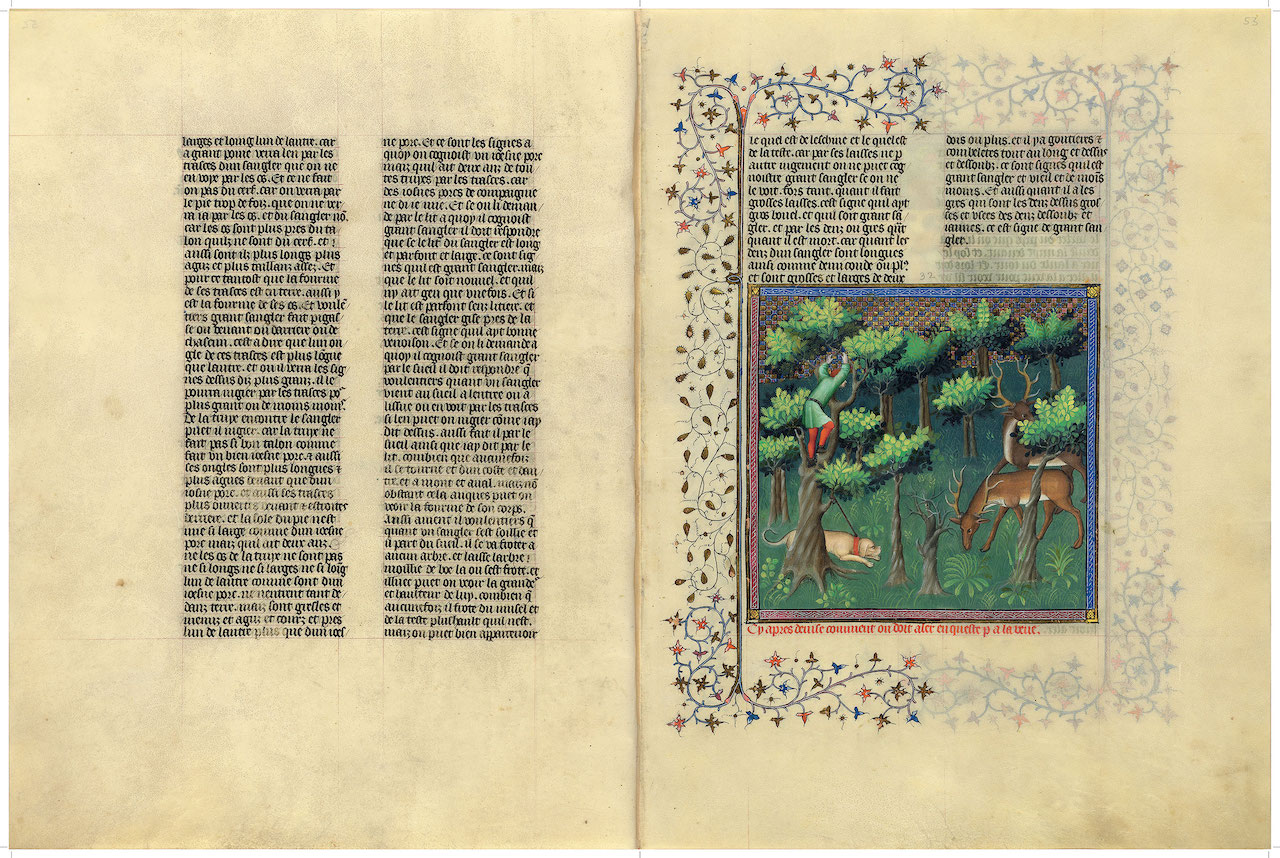 larges et loing lun de lautre. car
a grant poine verra len par les
trasces dun sanglier que on ne
en voye par les os. Et ce ne fait
on pas du cerf. car on verra par
le pie trop de foiz. que on ne ver
ra ia par les os. et du sanglier nõ.
car les os sont plus pres du ta
lon quilz ne sont du cerf. et
aussi sont ilz plus longs plus
aguz et plus taillanz assez. Et
pour ce tantost que la fourme
de ses trasces est en terre. aussi y
est la fourme de ses os. Et voule
tiers grant sanglier fait pigas
se ou devant ou darriere ou de
chascun. cest a dire que lun on
gle de ces trasces est plus lõgue
que lautre. et ou il verra les sig
nes dessus diz plus granz. il le
pourra iugier par les trasces po2
plus grant ou de moins mons.
De la truye encontre le sanglier
puet il iugier. car la truye ne
fait pas si bon talon comme
fait un bien ioesne porc. et aussi
ses ongles sont plus longues et
plus agues devant que dun
iosne porc. et aussi ses trasces
plus ouvertes devant et estroites
derriere. et la sole du pie nest
mie si large comme dun ioesne
porc mais quil ait deux anz.
ne les os de la truye ne sont pas
ne si longs ne si larges ne si loig
lun de lautre comme sont dun
ioesne porc. ne nentrent tant de
danz terre. mais sont gresles et
menuz et aguz et courz et pres
lun de lautre plus que dun ioes
ne porc. Et ce sont les signes a
quoy on cognoist un ioesne porc
mais quil ait deux anz de tou
tes truyes par les trasces. car
des iosnes porcs de compaigne
ne di ie mie. Et se on li deman
de par le lit a quoy il cognoist
grant sanglier il doit respondre
que se le lit du sanglier est long
et parfont et large. ce sont sig
nes quil est grant sanglier. mais
que le lit soit nouvel. et quil
ny ait geu que une fois. Et si
le lit est parfont senz litiere. et
que le sanglier gise pres de la
terre. cest signe quil ayt bonne
venoison. Et se on li demande a
quoy il cognoist grant sanglier
par le sueil il doit respondre q̃
voulentiers quant un sanglier
vient au sueil a lentree ou a
lissue on en voit par les trasces
si len puet on iugier cõme iay
dit dessus. aussi fait il par le
sueil ainsi que iay dit par le
lit. combien que aucunefoiz
il se tourne et dun coste et dau
tre. et a mont et aval. mais nõ
obstant cela auques puet on
veoir la fourme de son corps.
aussi avient il voulentiers q̃
quant un sanglier sest soillie et
il part du sueil. il se va froter a
aucun arbre. et laisse larbre
moillie de boe la ou sest frote. et
illuec puet on veoir la grande2
et la hauteur de luy. combien q̃
aucunefoiz il frote du musel et
de la teste plushault quil nest.
mais on puet bien apparcevoir
53
le quel est de leschine et le quel est
de la teste. car par ses laisses ne p
autre iugement on ne puet cog
noistre grant sanglier se on ne
le voit. fors tant. quant il fait
grosses laisses. cest signe quil ayt
gros bouel. et quil soit grant sã
glier. et par les denz ou gres qũt
quant il est mort. car quant les
denz dun sanglier sont longues
ainsi comme demi coude ou pl9
et sont grosses et larges de deux
dois ou plus. et il ya goutieres et
combeletes tout au long et dessus
et dessoubz. ce sont signes quil est
grant sanglier et vieil et de mois
moins. Et aussi quant il a les
gres qui sont les denz dessus gros
ses et usees des denz dessoubz et
iaunes. ce est signe de grant san
glier.
Cy apres devise comment on doit aler en queste p a la veue.